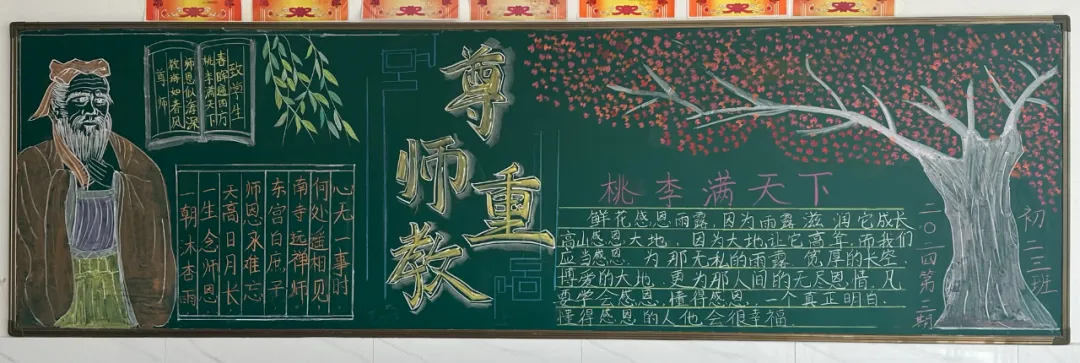 致学生
春晖遍四方
桃李满天下
师恩似海深
教诲如春风
尊师
心无一事时
何处遥相见
南寺远禅师
东宫白庶子
师恩永难忘
天高日月长
一生念师恩
一朝沐杏雨
尊师重教
桃李满天下
鲜花感恩雨露,因为雨露滋润它成长
高山感恩大地,因为大地让它高耸,而我们
应当感恩,为那无私的雨露,宽厚的长空
博爱的大地,更为那人间的无尽恩情,凡
要学会感恩,懂得感恩,一个真正明白
懂得感恩的人他会很幸福.
二〇二四第三期
初二三班